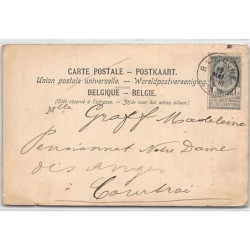 CARTE POSTALE - POSTKAART.
Union postale universelle. - Wereldpostvereeniging
BELGIQUE - BELGIE.
(Côté réservé à l'adresse. - Zijde voor het adres alleen.)
Mlle Graff Madeleine
Pensionnat Notre Dame
des Anges
à Courtrai